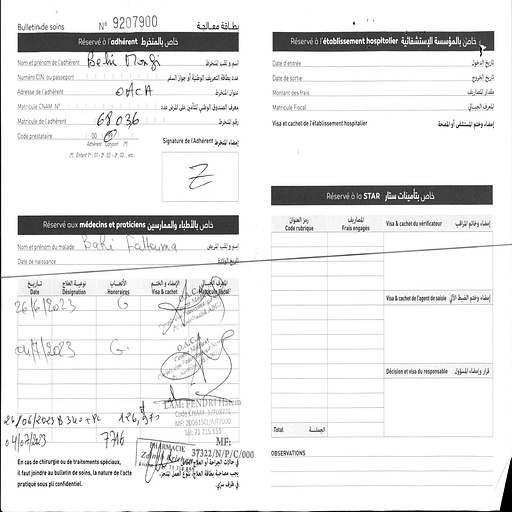 Bulletin de soins N° 9207900 بطاقة معالجة
Réservé à l'adhérent خاص بالمنخرط
Nom et prénom de l'adhérent Behi Mongi اسم و لقب المنخرط
Numéro CIN ou passeport عدد بطاقة التعريف الوطنية أو جواز السفر
Adresse de l'adhérent OACA عنوان المنخرط
Matricule CNAM N°
Matricule de l'adhérent 68036 رقم المنخرط
Code prestataire 00
Adhérent Conjoint (*)
Signature de l'Adhérent إمضاء المنخرط
Réservé aux médecins et proticiens خاص بالأطباء والممارسين
Nom et prénom du malade Bahi Fattouma اسم و لقب المريض
Date de naissance تاريخ الولادة
تاريخ نوعية العلاج الأتعاب الإمضاء و الختم المعرف الجبائي
Date Désignation Honoraires Visa & cachet Matricule fiscal
26/6/2023 G
04/7/2023 G
O.A.C.A
LAM: FENDRI Hatem
Tél: 71 715 555
04/07/2023 7716
PHARMACIE
MF:
37322/N/P/C/000
En cas de chirurgie ou de traitements spéciaux,
il faut joindre au bulletin de soins, la nature de l'acte
pratiqué sous pli confidentiel.
في حالات الجراحة أو العلاج الخاص
في ظرف سري.
Réservé à l'établissement hospitolier خاص بالمؤسسة الإستشفائية
Date d'entrée تاريخ الدخول
Date de sortie تاريخ الخروج
Montant des frais مقدار المصاريف
Matricule Fiscal المعرف الجبائي
Visa et cachet de l'établissement hospitalier إمضاء وختم المستشفى أو المصحة
Réservé à la STAR خاص بتأمينات ستار
رمز العنوان المصاريف
Code rubrique Frais engagés
Visa & cachet du vérificateur إمضاء وختم المراقب
Visa & cachet de l'agent de saisie إمضاء وختم الضبط الآلي
Décision et visa du responsable قرار وإمضاء المسؤول
Total الجملة
OBSERVATIONS